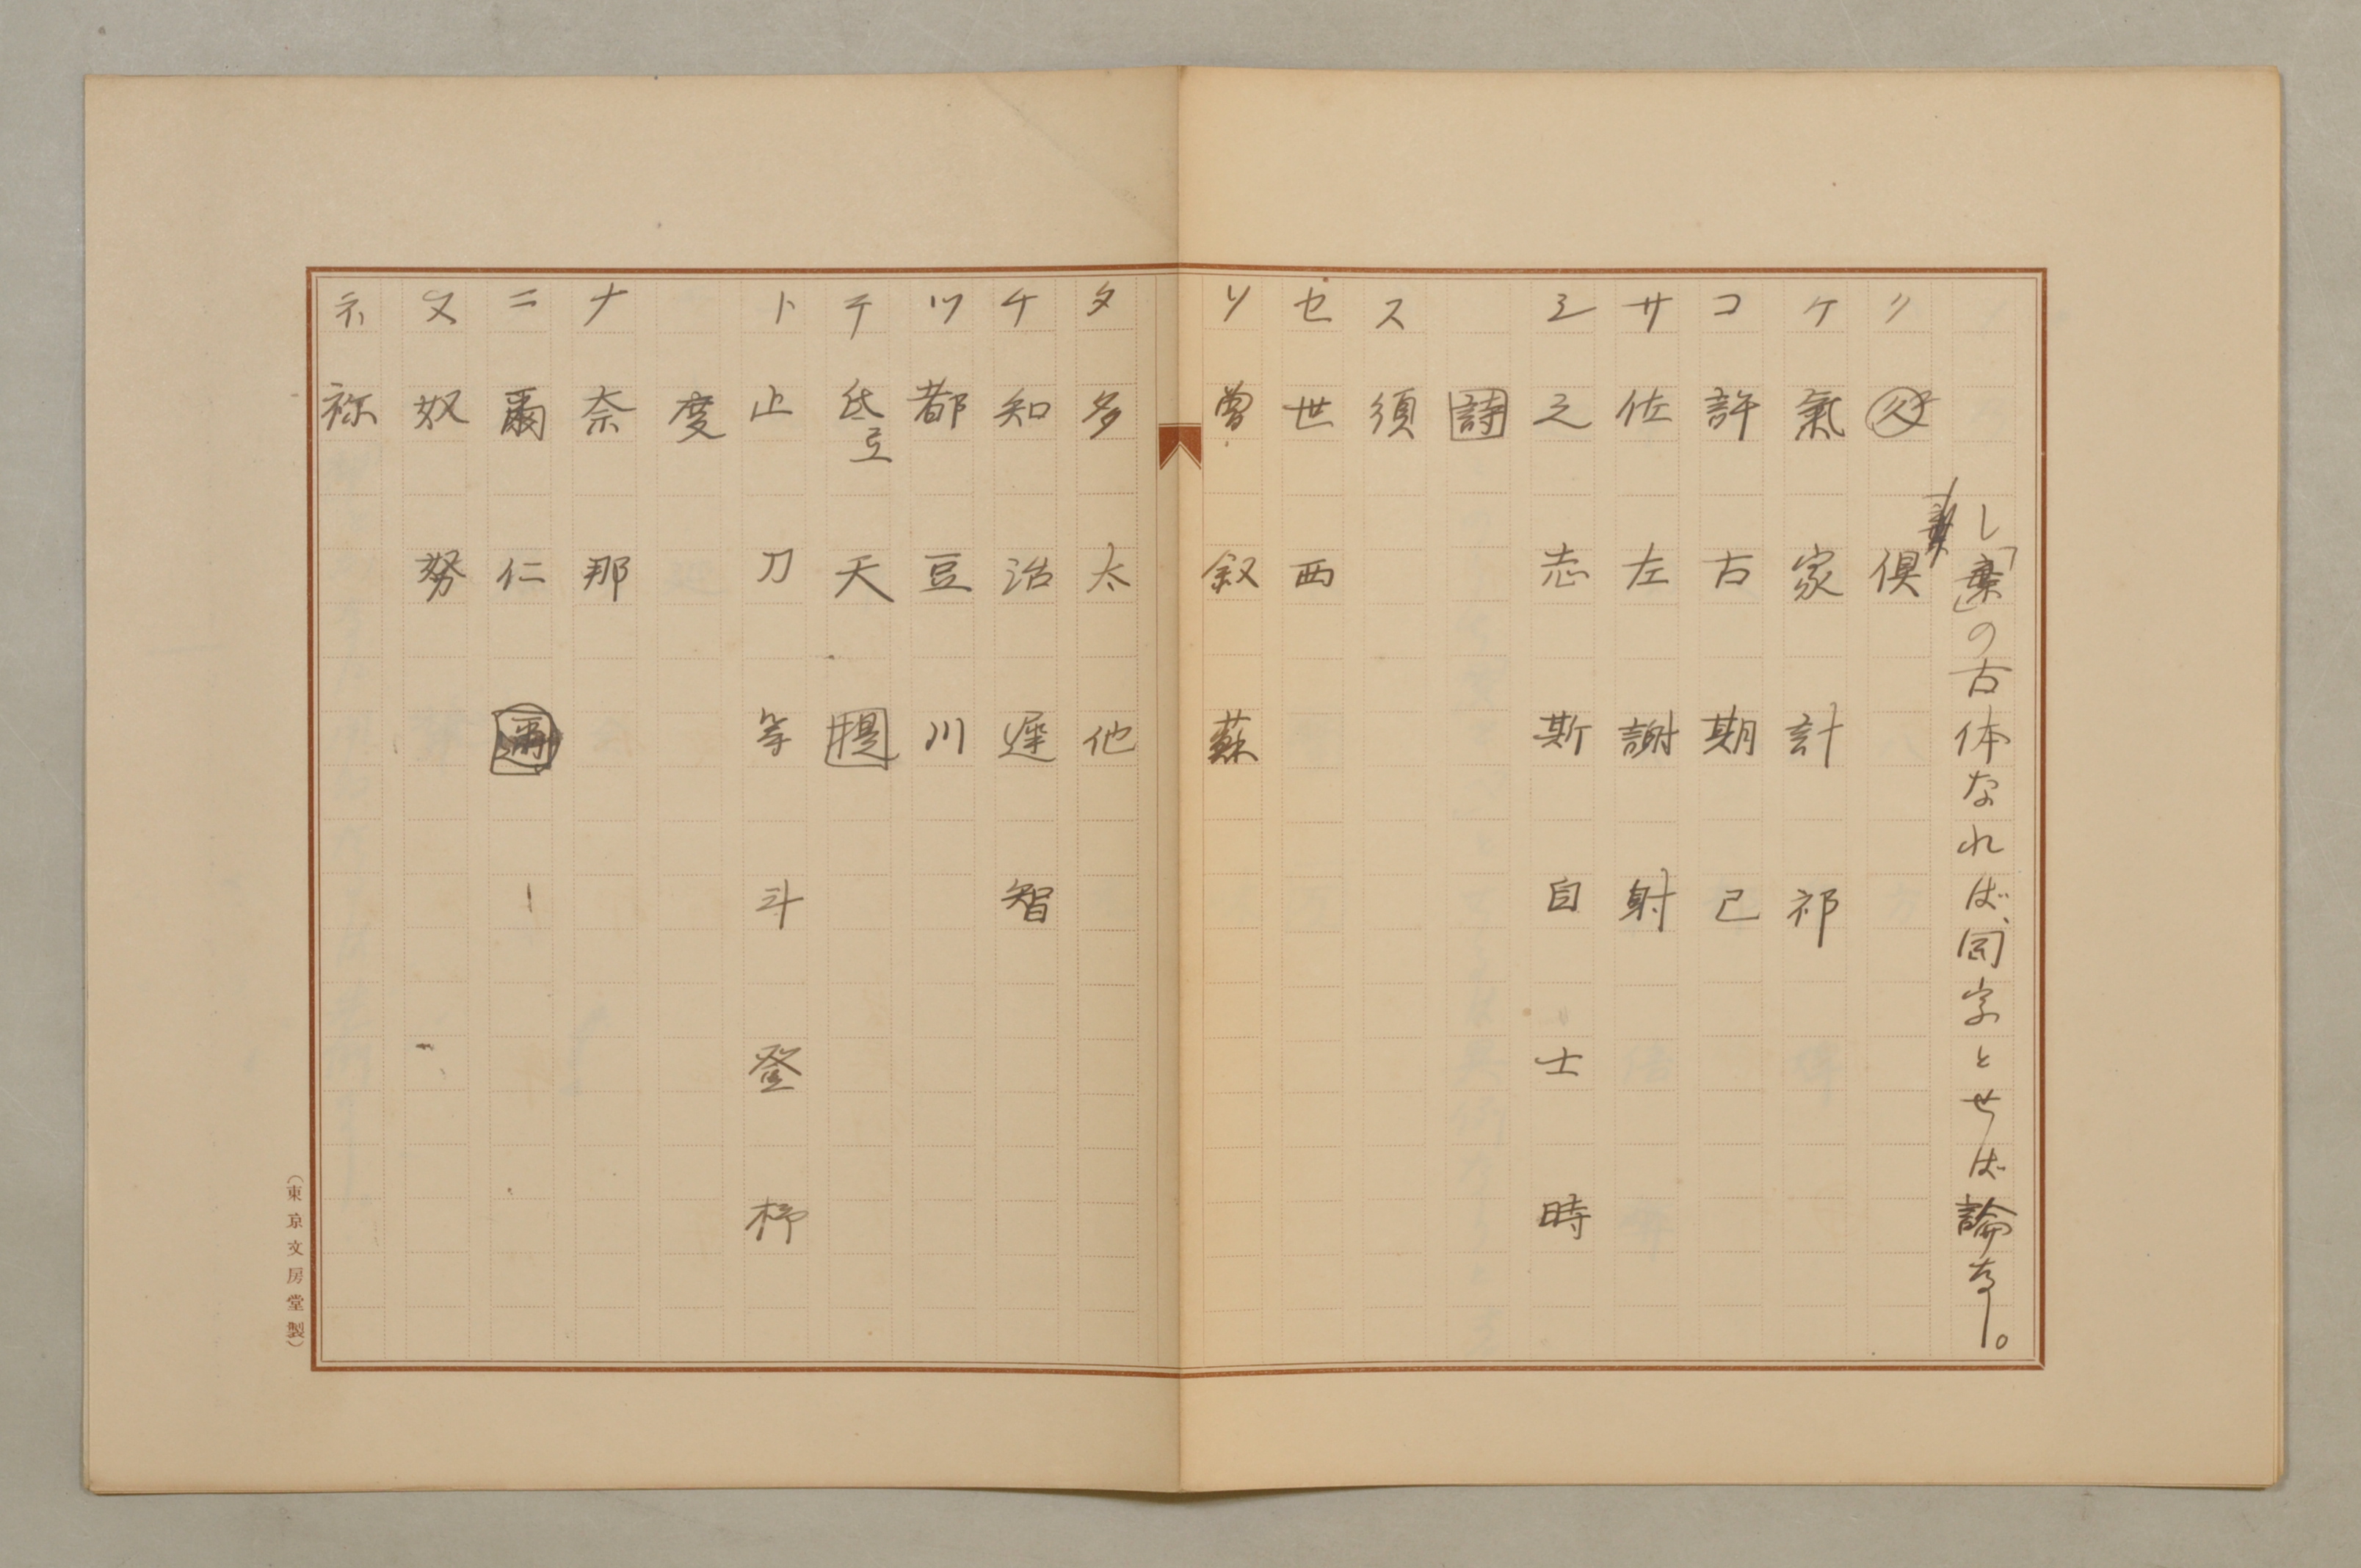 し「棄」の古体なれば、同字とせば論なし。
ク 久 倶
ケ 氣 家 計 祁
コ 許 古 期 己
サ 佐 左 謝 射
シ 之 志 斯 自 士 時
詩
ス 須
セ 世 西
ソ 曽 叙 蘇
タ 多 太 他
チ 知 治 遅 智
ツ 都 豆 川
テ 氐 天 提
ト 止 刀 等 斗 登 杼
度
ナ 奈 那
ニ 爾 仁
ヌ 奴 努
ネ 祢
(東京文房堂製)